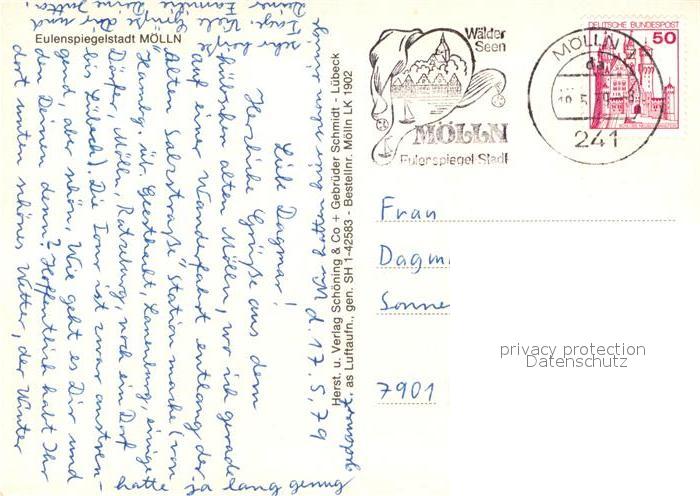 Eulenspiegelstadt MÖLLN
Mölln, d. 17.5.79
Liebe Dagmar!
Herzliche Grüße aus dem
hübschen alten Mölln, wo ich gerade
auf einer Wanderfahrt entlang der
"Alten Salzstraße" Station mache (von
Hambg. üb. Geesthacht, Lauenburg, einige
Dörfer, Mölln, Ratzeburg, noch ein Dorf
bis Lübeck). Die Tour ist zwar anstren-
gend, aber schön. Wie geht es Dir und
den Deinen denn? Hoffentlich habt Ihr
dort unten schönes Wetter, der Winter
hatte ja lang genug
gedauert.
sehr heiße
Tage. Viele Grüße Dir und
Deiner Familie Deine Jutta
Herst. u. Verlag Schöning & Co + Gebrüder Schmidt - Lübeck
as Luftaufn., gen. SH 1-42583 - Bestellnr. Mölln LK 1902
Wälder
Seen
MÖLLN
Eulenspiegel Stadt
MÖLLN
da
241
DEUTSCHE BUNDESPOST
50
Frau
Dagm
Sonne
7901
privacy protection
Datenschutz